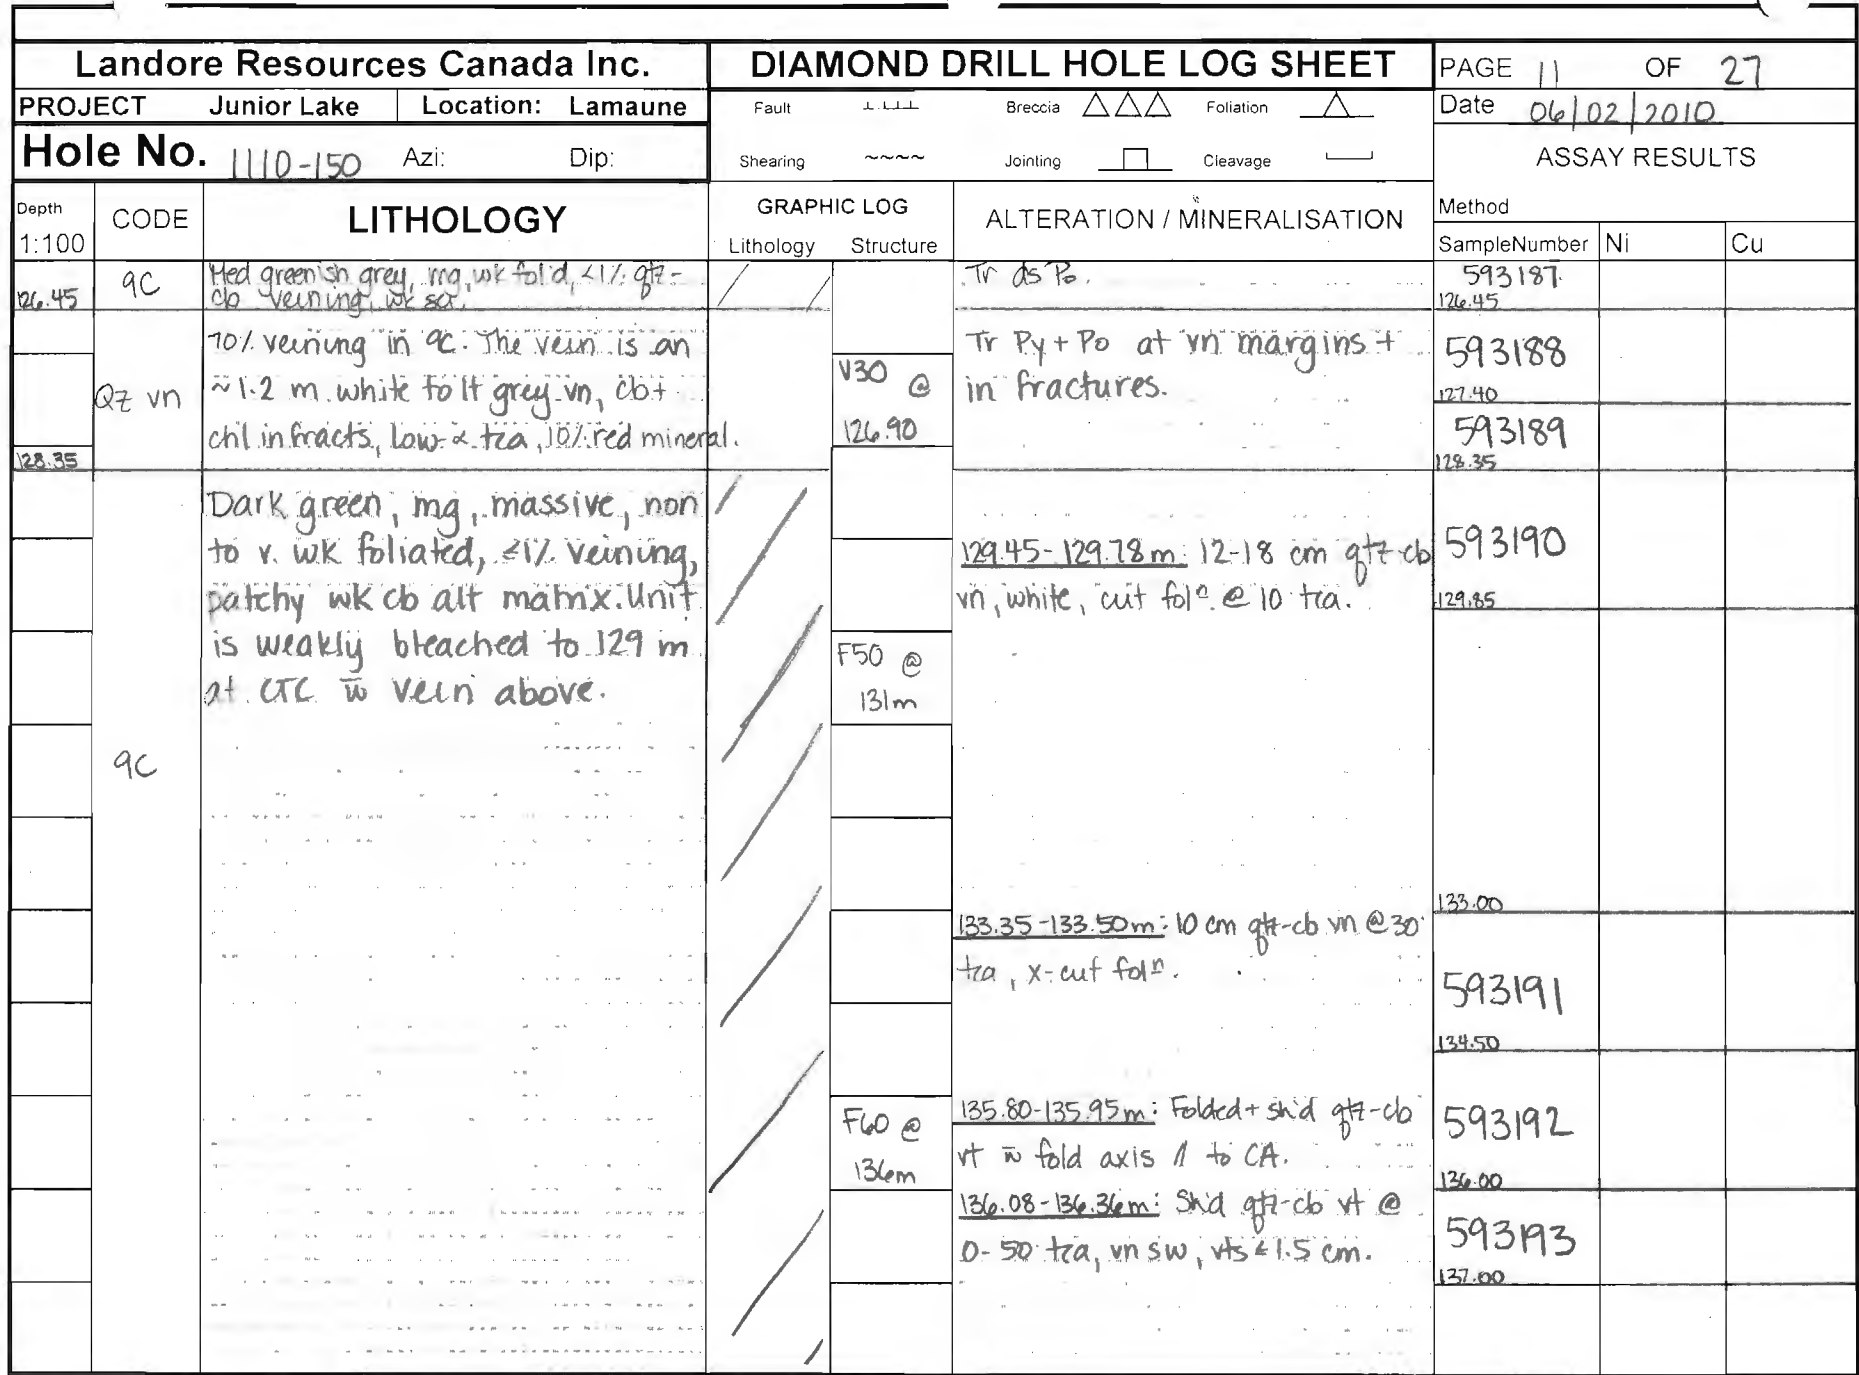 Landore Resources Canada Inc.
DIAMOND DRILL HOLE LOG SHEET
PAGE 11 OF 27
PROJECT Junior Lake Location: Lamaune
Fault Breccia Foliation
Date 06/02/2010
Hole No. 1110-150 Azi: Dip:
Shearing Jointing Cleavage
ASSAY RESULTS
Depth
1:100
CODE
LITHOLOGY
GRAPHIC LOG
Lithology Structure
ALTERATION / MINERALISATION
Method
SampleNumber Ni Cu
126.45
9C
Med greenish grey, mg, wk fol'd, <1% qtz-
cb veining, wk
Tr ds Po.
593187
126.45
Qz vn
128.35
70% veining in 9C. The vein is an
~1.2 m white to lt grey vn, cb+
chl in fracts, low α tca, 10% red mineral.
V30 @
126.90
Tr Py + Po at vn margins +
in fractures.
593188
127.40
593189
128.35
9C
Dark green, mg, massive, non
to v. wk foliated, ≤1% veining,
patchy wk cb alt matrix. Unit
is weakly bleached to 129 m
at CTC w̄ vein above.
F50 @
131m
F60 @
136m
129.45-129.78m: 12-18 cm qtz-cb
vn, white, cut folⁿ @ 10 tca.
133.35-133.50m: 10 cm qtz-cb vn @ 30
tca, x-cut folⁿ.
135.80-135.95m: Folded + sh'd qtz-cb
vt w̄ fold axis // to CA.
136.08-136.36m: Sh'd qtz-cb vt @
0-50 tca, vn sw, vts ≤1.5 cm.
593190
129.85
133.00
593191
134.50
593192
136.00
593193
137.00